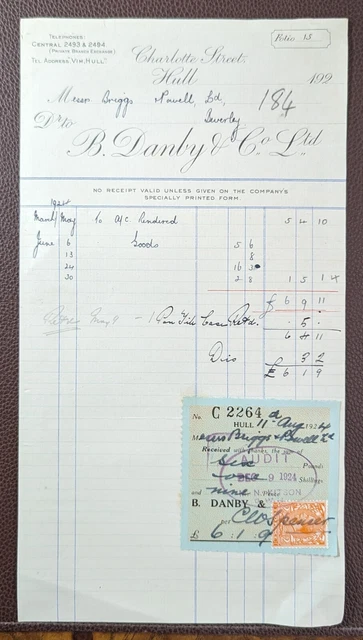 TELEPHONES
CENTRAL 2493 & 2484.
(PRIVATE BRANCH EXCHANGE)
TEL. ADDRESS "VIM, HULL"
Folio 15
Charlotte Street,
Hull 192
Messrs Briggs Powell, Ltd, 184
Beverley
Dr. to
B. Danby & Co. Ltd
NO RECEIPT VALID UNLESS GIVEN ON THE COMPANY'S
SPECIALLY PRINTED FORM.
1924
March/May To A/c Rendered 5 4 10
June 6 Goods 5 6
13 8
24 16
30 2 8 1 5 1 4
£ 6 9 11
May 9 - 1 Case Retd. 5
6 4 11
Dis 3 2
£ 6 1 9
No. C 2264
HULL 11 Aug 1924
Messrs Briggs & Powell Ltd
Received with thanks, the sum of
Six Pounds
AUDIT
one Shillings
DEC 9 1924
and nine Pence
B. DANBY &
per
£ 6 - 1 - 9